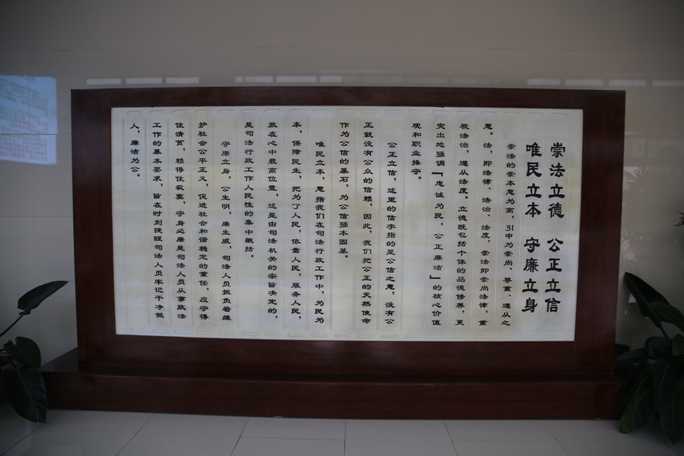 崇法立德　公正立信
唯民立本　守廉立身
崇法的崇本意为高，引申为崇尚、尊重、遵从之
意。法，即法律、法治、法度，崇法即崇尚法律，重
视法治，遵从法度。立德既包括个体的品德修养，更
突出地强调“忠诚为民，公正廉洁”的核心价值
观和职业操守。
公正立信，这里的信字指的是公信之意，没有公
正就没有公众的信赖，因此，我们把公正的天然使命
作为公信的基石，为公信强本固基。
唯民立本，意指我们在司法行政工作中，为民为
本，保障民生，把为了人民，依靠人民，服务人民，
放在心中最高位置，这是由司法机关的宗旨决定的，
是司法行政工作人民性的集中概括。
守廉立身，公生明，廉生威，司法人员担负着维
护社会公平正义，促进社会和谐稳定的重任，应守得
住清贫，赖得住寂寞，守身必廉是司法人员从事政法
工作的基本要求，旨在时刻提醒司法人员牢记干净做
人，廉洁为公。